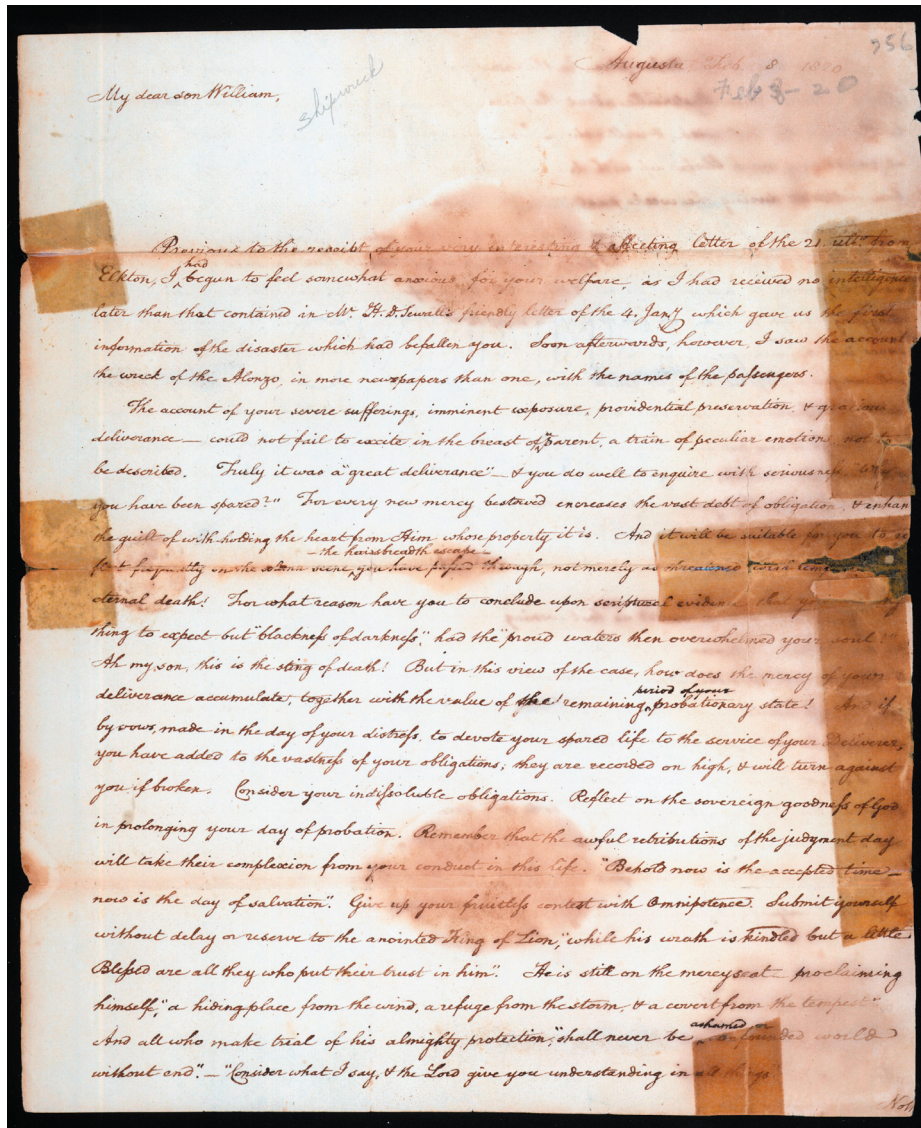 256
Augusta Feb. 8 1820
Feb 8 - 20
My dear son William,
shipwreck
Previous to the receipt of your very interesting & affecting letter of the 21. ulto. from
Elkton, I had begun to feel somewhat anxious for your welfare, as I had received no intelligence
later than that contained in Mr. H. D. Sewall's friendly letter of the 4. Jany which gave us the first
information of the disaster which had befallen you. Soon afterwards, however, I saw the account of
the wreck of the Alonzo, in more newspapers than one, with the names of the passengers.
The account of your severe sufferings, imminent exposure, providential preservation, & gracious
deliverance — could not fail to excite in the breast of a parent, a train of peculiar emotion not to
be described. Truly it was a "great deliverance" — & you do well to enquire with seriousness, "why
you have been spared?" For every new mercy bestowed encreases the vast debt of obligation, & enhan
the guilt of with holding the heart from Him whose property it is. And it will be suitable for you to re
flect frequently on the scene, — the hairsbreadth escape — you have passed through, not merely as threatened with tem
eternal death! For what reason have you to conclude upon scriptural evidence that you
thing to expect but "blackness of darkness", had the "proud waters then overwhelmed your soul?"
Ah my son, this is the sting of death! But in this view of the case, how does the mercy of your
deliverance accumulate, together with the value of the remaining period of your probationary state! And if
by vows, made in the day of your distress, to devote your spared life to the service of your Deliverer,
you have added to the vastness of your obligations; they are recorded on high, & will turn against
you if broken. Consider your indissoluble obligations. Reflect on the sovereign goodness of God
in prolonging your day of probation. Remember that the awful retributions of the judgment day
will take their complexion from your conduct in this life. "Behold now is the accepted time —
now is the day of salvation". Give up your fruitless contest with Omnipotence. Submit yourself
without delay or reserve to the anointed King of Zion, "while his wrath is kindled but a little
Blessed are all they who put their trust in him". He is still on the mercyseat proclaiming
himself, "a hiding place from the wind, a refuge from the storm, & a covert from the tempest".
And all who make trial of his almighty protection, "shall never be ashamed or confounded world
without end". — "Consider what I say, & the Lord give you understanding in all things"